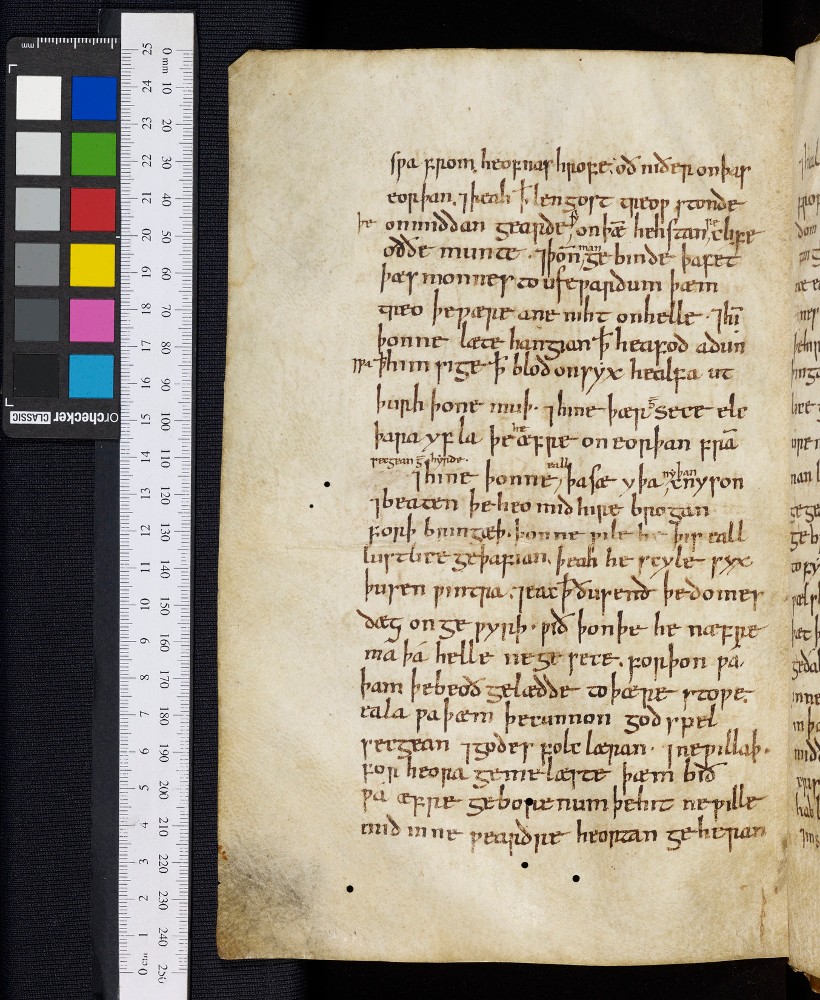 spa from heofnas hrofe. oð niðer on þas
eorþan. ⁊ þeah ꝥ lengost treop stonde
þe on middan gearde, ⁊ on þæ hehstan clife
oððe munte. ⁊ þoñ man gebinde þa fet
þæs monnes to ufepardum þæm
treo þe pære ane niht on helle. ⁊ hī
þonne læte hangian ꝥ heafod adun
spa ꝥ him sige ꝥ blod on syx healfa ut
þurh þone muþ. ⁊ hine þær sece ele
þara yfla þe he æfre on eorþan frā
secgean gehyrde.
⁊ hine þonne eall þa sæ yþa nyþan cnyson
⁊ beaten þe heo mid hire brogan
forþ bringæþ. þonne pile he þis eall
lustlice geþafian. þeah he scyle syx
þusen pintra. ⁊ eac ꝥ ðusend þe domes
dæg on gepyrþ. pið þon þe he næfre
ma þā helle ne gesece. forþon pa
þam þe beoð gelædde to þære stope.
eala pa þæm þe cunnon godspel
secgean ⁊ godes folc læran. ⁊ ne pillaþ.
for heora gemelæste þæm bið
pa æfre geborenum þe hit ne pille
mid inne peardre heortan geheran